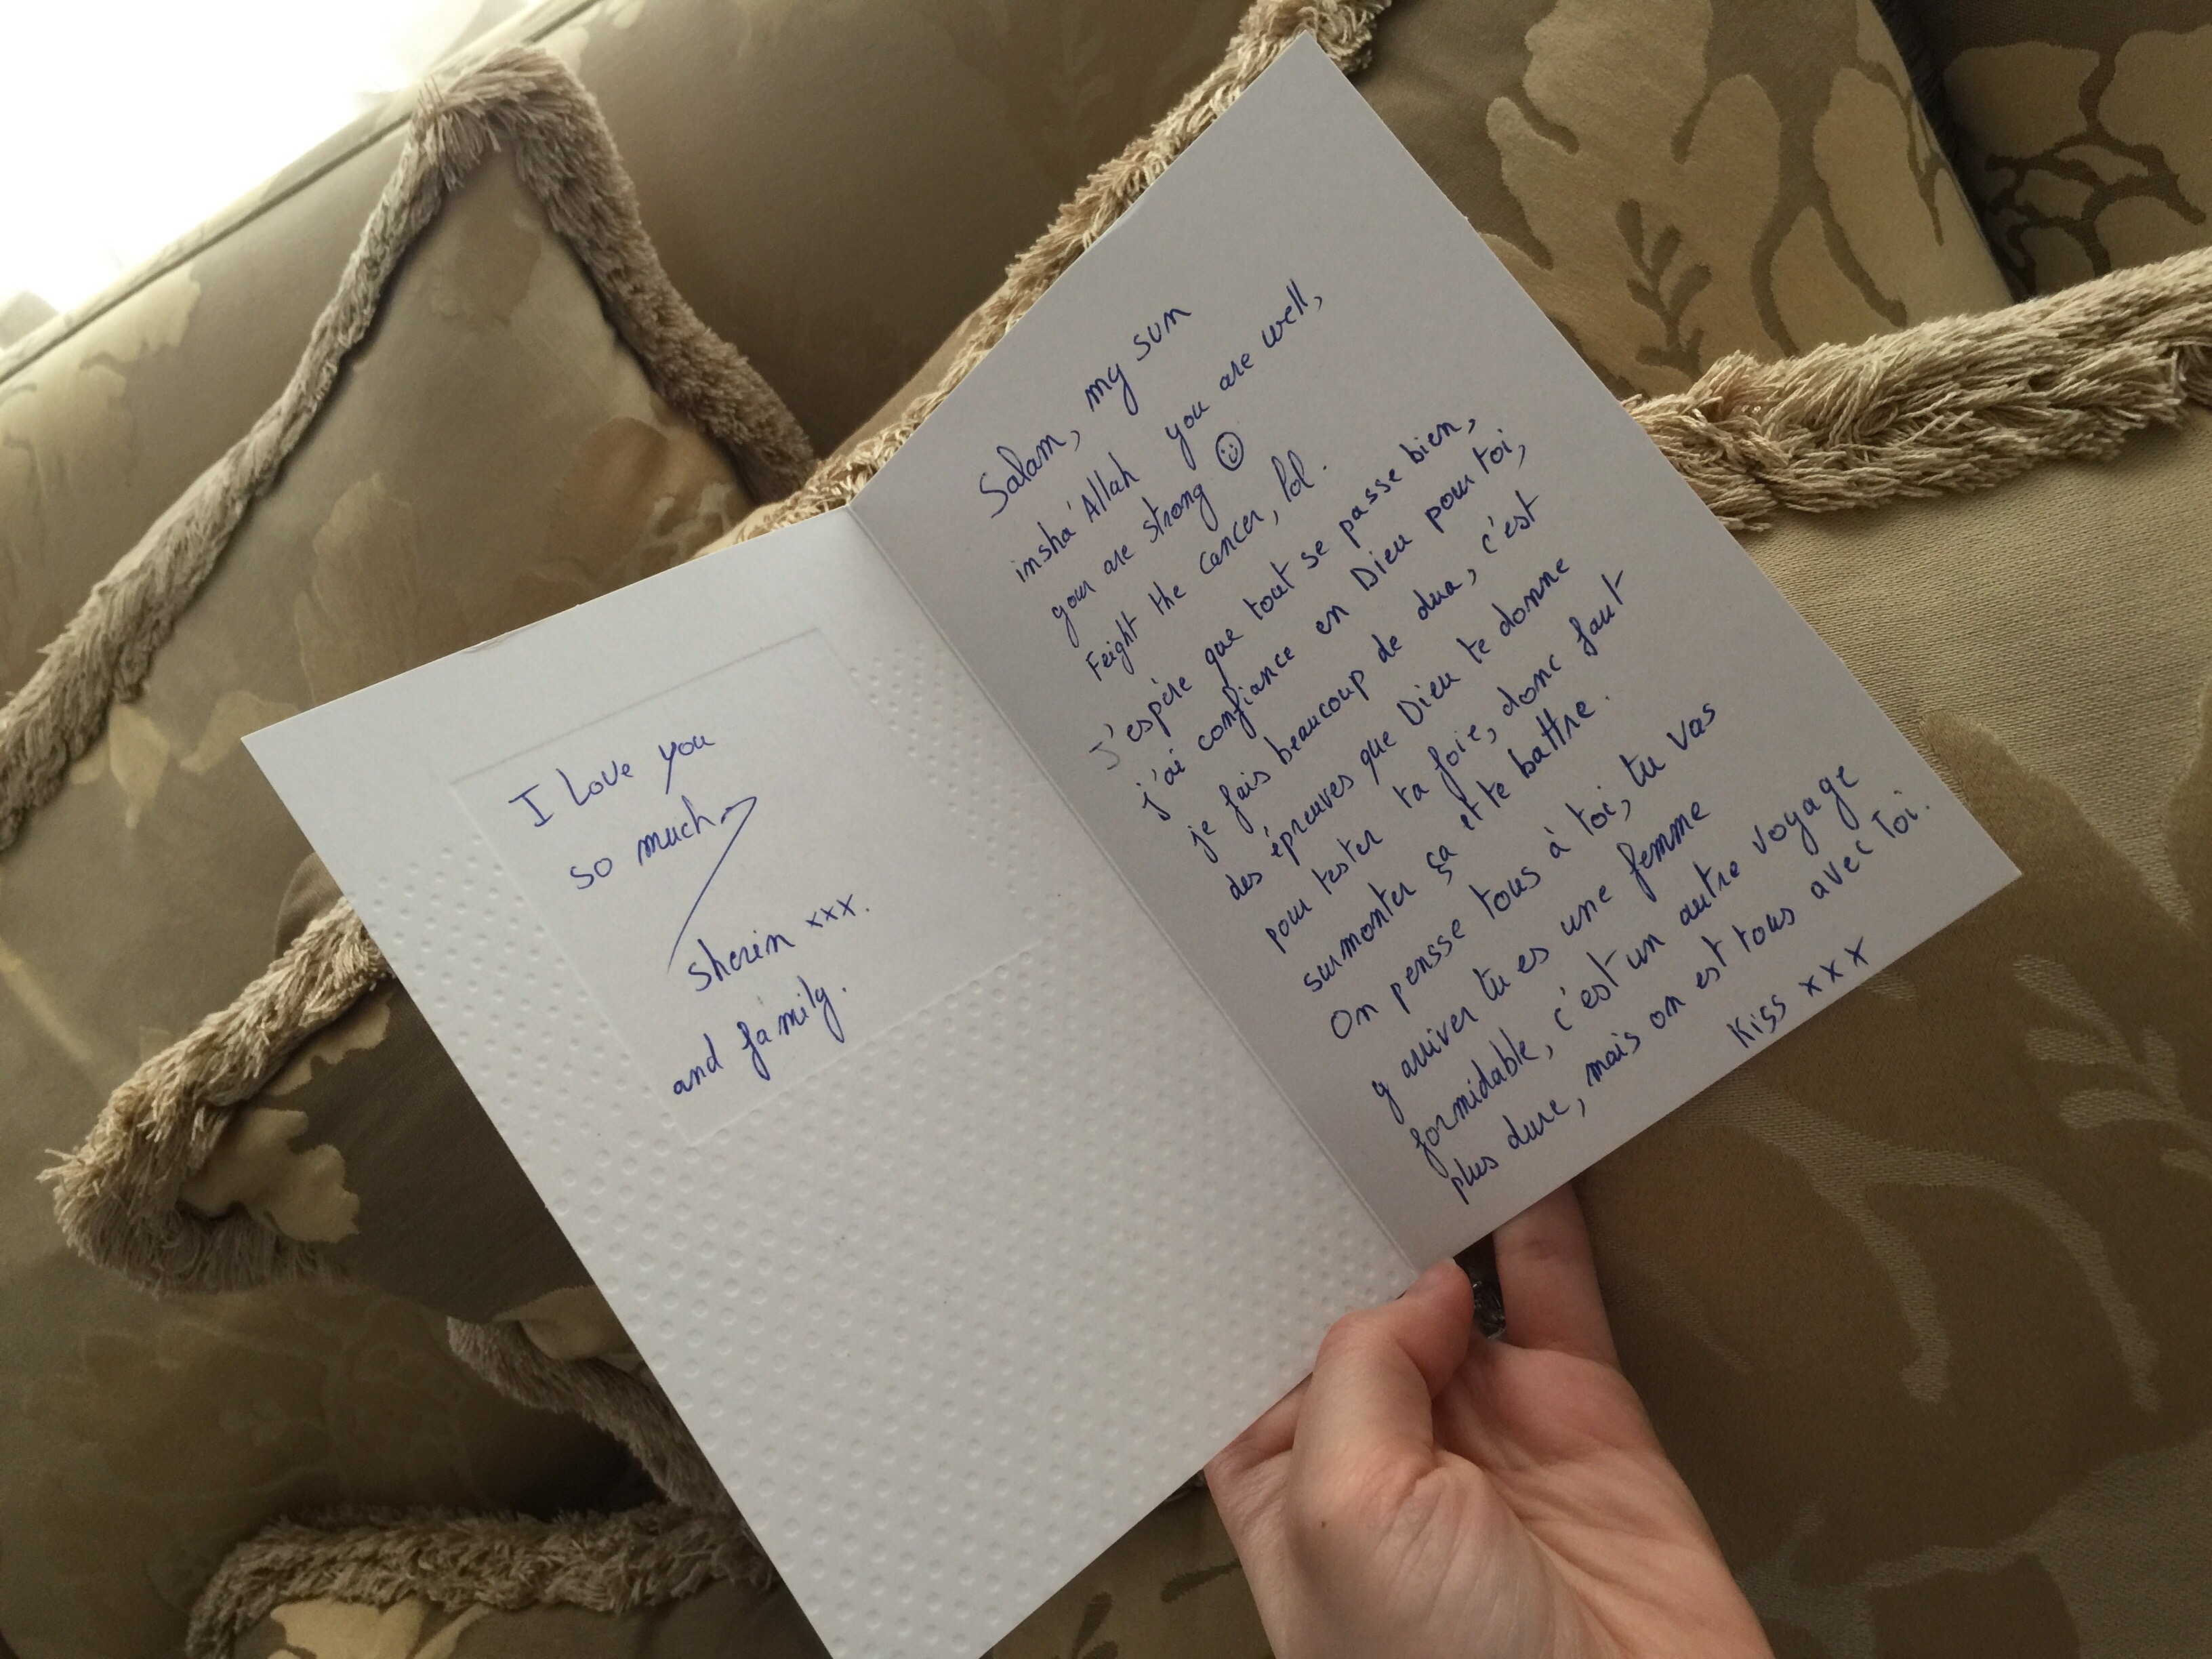 I Love you
so much
Sherin xxx.
and family.
Salam, my sun
insha'Allah you are well,
you are strong ☺
Feight the cancer, lol.
J'espère que tout se passe bien,
j'ai confiance en Dieu pour toi,
je fais beaucoup de dua, c'est
des épreuves que Dieu te donne
pour tester ta foie, donc faut
surmonter ça et te battre.
On pensse tous à toi, tu vas
y arriver tu es une femme
formidable, c'est un autre voyage
plus dure, mais on est tous avec toi.
Kiss xxx